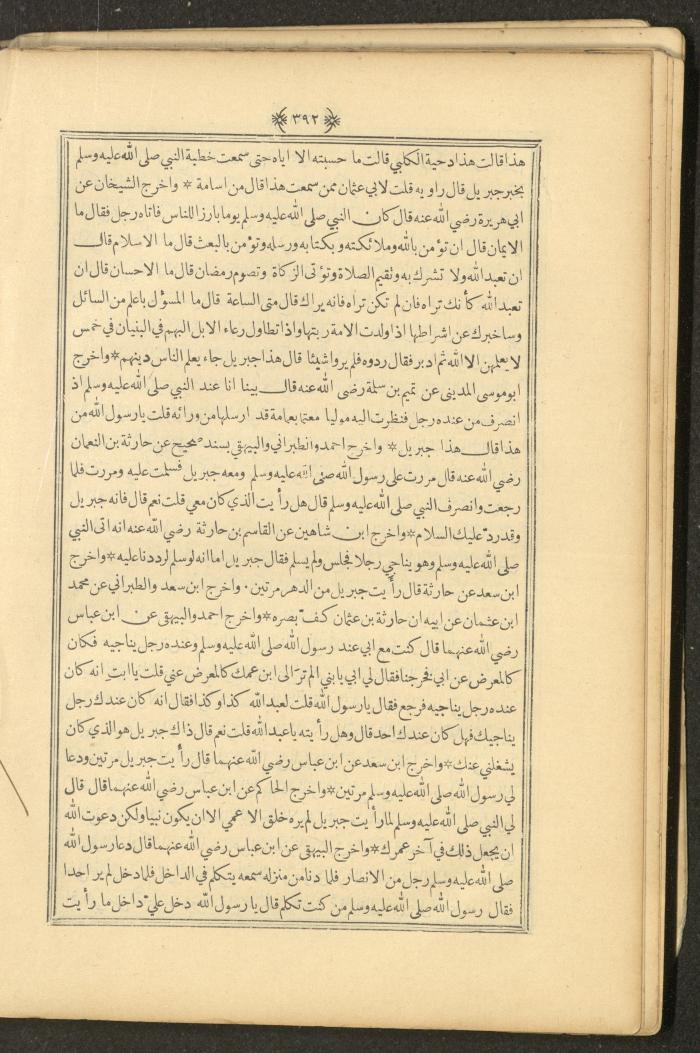 ﴿ ٣٩٢ ﴾
هذا قالت هذا دحية الكلبي قالت ما حسبته الا اياه حتى سمعت خطبة النبي صلى الله عليه وسلم
بخبر جبريل قال راويه قلت لابي عثمان ممن سمعت هذا قال من اسامة * واخرج الشيخان عن
ابي هريرة رضي الله عنه قال كان النبي صلى الله عليه وسلم يوما بارزا للناس فاتاه رجل فقال ما
الايمان قال ان تؤمن بالله وملائكته وبكتابه ورسله وتؤمن بالبعث قال ما الاسلام قال
ان تعبد الله ولا تشرك به وتقيم الصلاة وتؤتى الزكاة وتصوم رمضان قال ما الاحسان قال ان
تعبد الله كأنك تراه فان لم تكن تراه فانه يراك قال متى الساعة قال ما المسؤل باعلم من السائل
وساخبرك عن اشراطها اذا ولدت الامة ربتها واذا تطاول رعاء الابل البهم في البنيان في خمس
لا يعلمهن الا الله ثم ادبر فقال ردوه فلم يروا شيئا قال هذا جبريل جاء يعلم الناس دينهم * واخرج
ابو موسى المدينى عن تميم بن سلمة رضي الله عنه قال بينا انا عند النبي صلى الله عليه وسلم اذ
انصرف من عنده رجل فنظرت اليه موليا معتما بعمامة قد ارسلها من ورائه قلت يارسول الله من
هذا قال هذا جبريل * واخرج احمد والطبراني والبيهقي بسند صحيح عن حارثة بن النعمان
رضي الله عنه قال مررت على رسول الله صلى الله عليه وسلم ومعه جبريل فسلمت عليه ومررت فلما
رجعت وانصرف النبي صلى الله عليه وسلم قال هل رأيت الذي كان معي قلت نعم قال فانه جبريل
وقد ردّ عليك السلام * واخرج ابن شاهين عن القاسم بن حارثة رضي الله عنه انه اتى النبي
صلى الله عليه وسلم وهو يناجي رجلا فجلس ولم يسلم فقال جبريل اما انه لو سلم لرددنا عليه * واخرج
ابن سعد عن حارثة قال رأيت جبريل من الدهر مرتين . واخرج ابن سعد والطبراني عن محمد
ابن عثمان عن ابيه ان حارثة بن عثمان كفّ بصره * واخرج احمد والبيهقي عن ابن عباس
رضي الله عنهما قال كنت مع ابي عند رسول الله صلى الله عليه وسلم وعنده رجل يناجيه فكان
كالمعرض عن ابي فخرجنا فقال لي ابي يا بني الم ترَ الى ابن عمك كالمعرض عني قلت يا ابتِ انه كان
عنده رجل يناجيه فرجع فقال يارسول الله قلت لعبد الله كذا وكذا فقال انه كان عندك رجل
يناجيك فهل كان عندك احد قال وهل رأيته يا عبد الله قلت نعم قال ذاك جبريل هو الذي كان
يشغلني عنك * واخرج ابن سعد عن ابن عباس رضي الله عنهما قال رأيت جبريل مرتين ودعا
لي رسول الله صلى الله عليه وسلم مرتين * واخرج الحاكم عن ابن عباس رضي الله عنهما قال قال
لي النبي صلى الله عليه وسلم لما رأيت جبريل لم يره خلق الا عمي الا ان يكون نبيا ولكن دعوت الله
ان يجعل ذلك في آخر عمرك * واخرج البيهقي عن ابن عباس رضي الله عنهما قال دعا رسول الله
صلى الله عليه وسلم رجل من الانصار فلما دنا من منزله سمعه يتكلم في الداخل فلما دخل لم ير احدا
فقال رسول الله صلى الله عليه وسلم من كنت تكلم قال يارسول الله دخل عليّ داخل ما رأيت